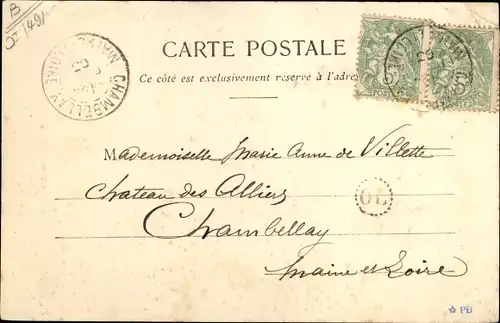 B
(49)
CARTE POSTALE
Ce côté est exclusivement réservé à l'adres
CHAMBELLAY
MAINE ET LOIRE
Mademoiselle Marie Anne de Villette
Chateau des Alliers
Chambellay
Maine et Loire
OL
☆ PB